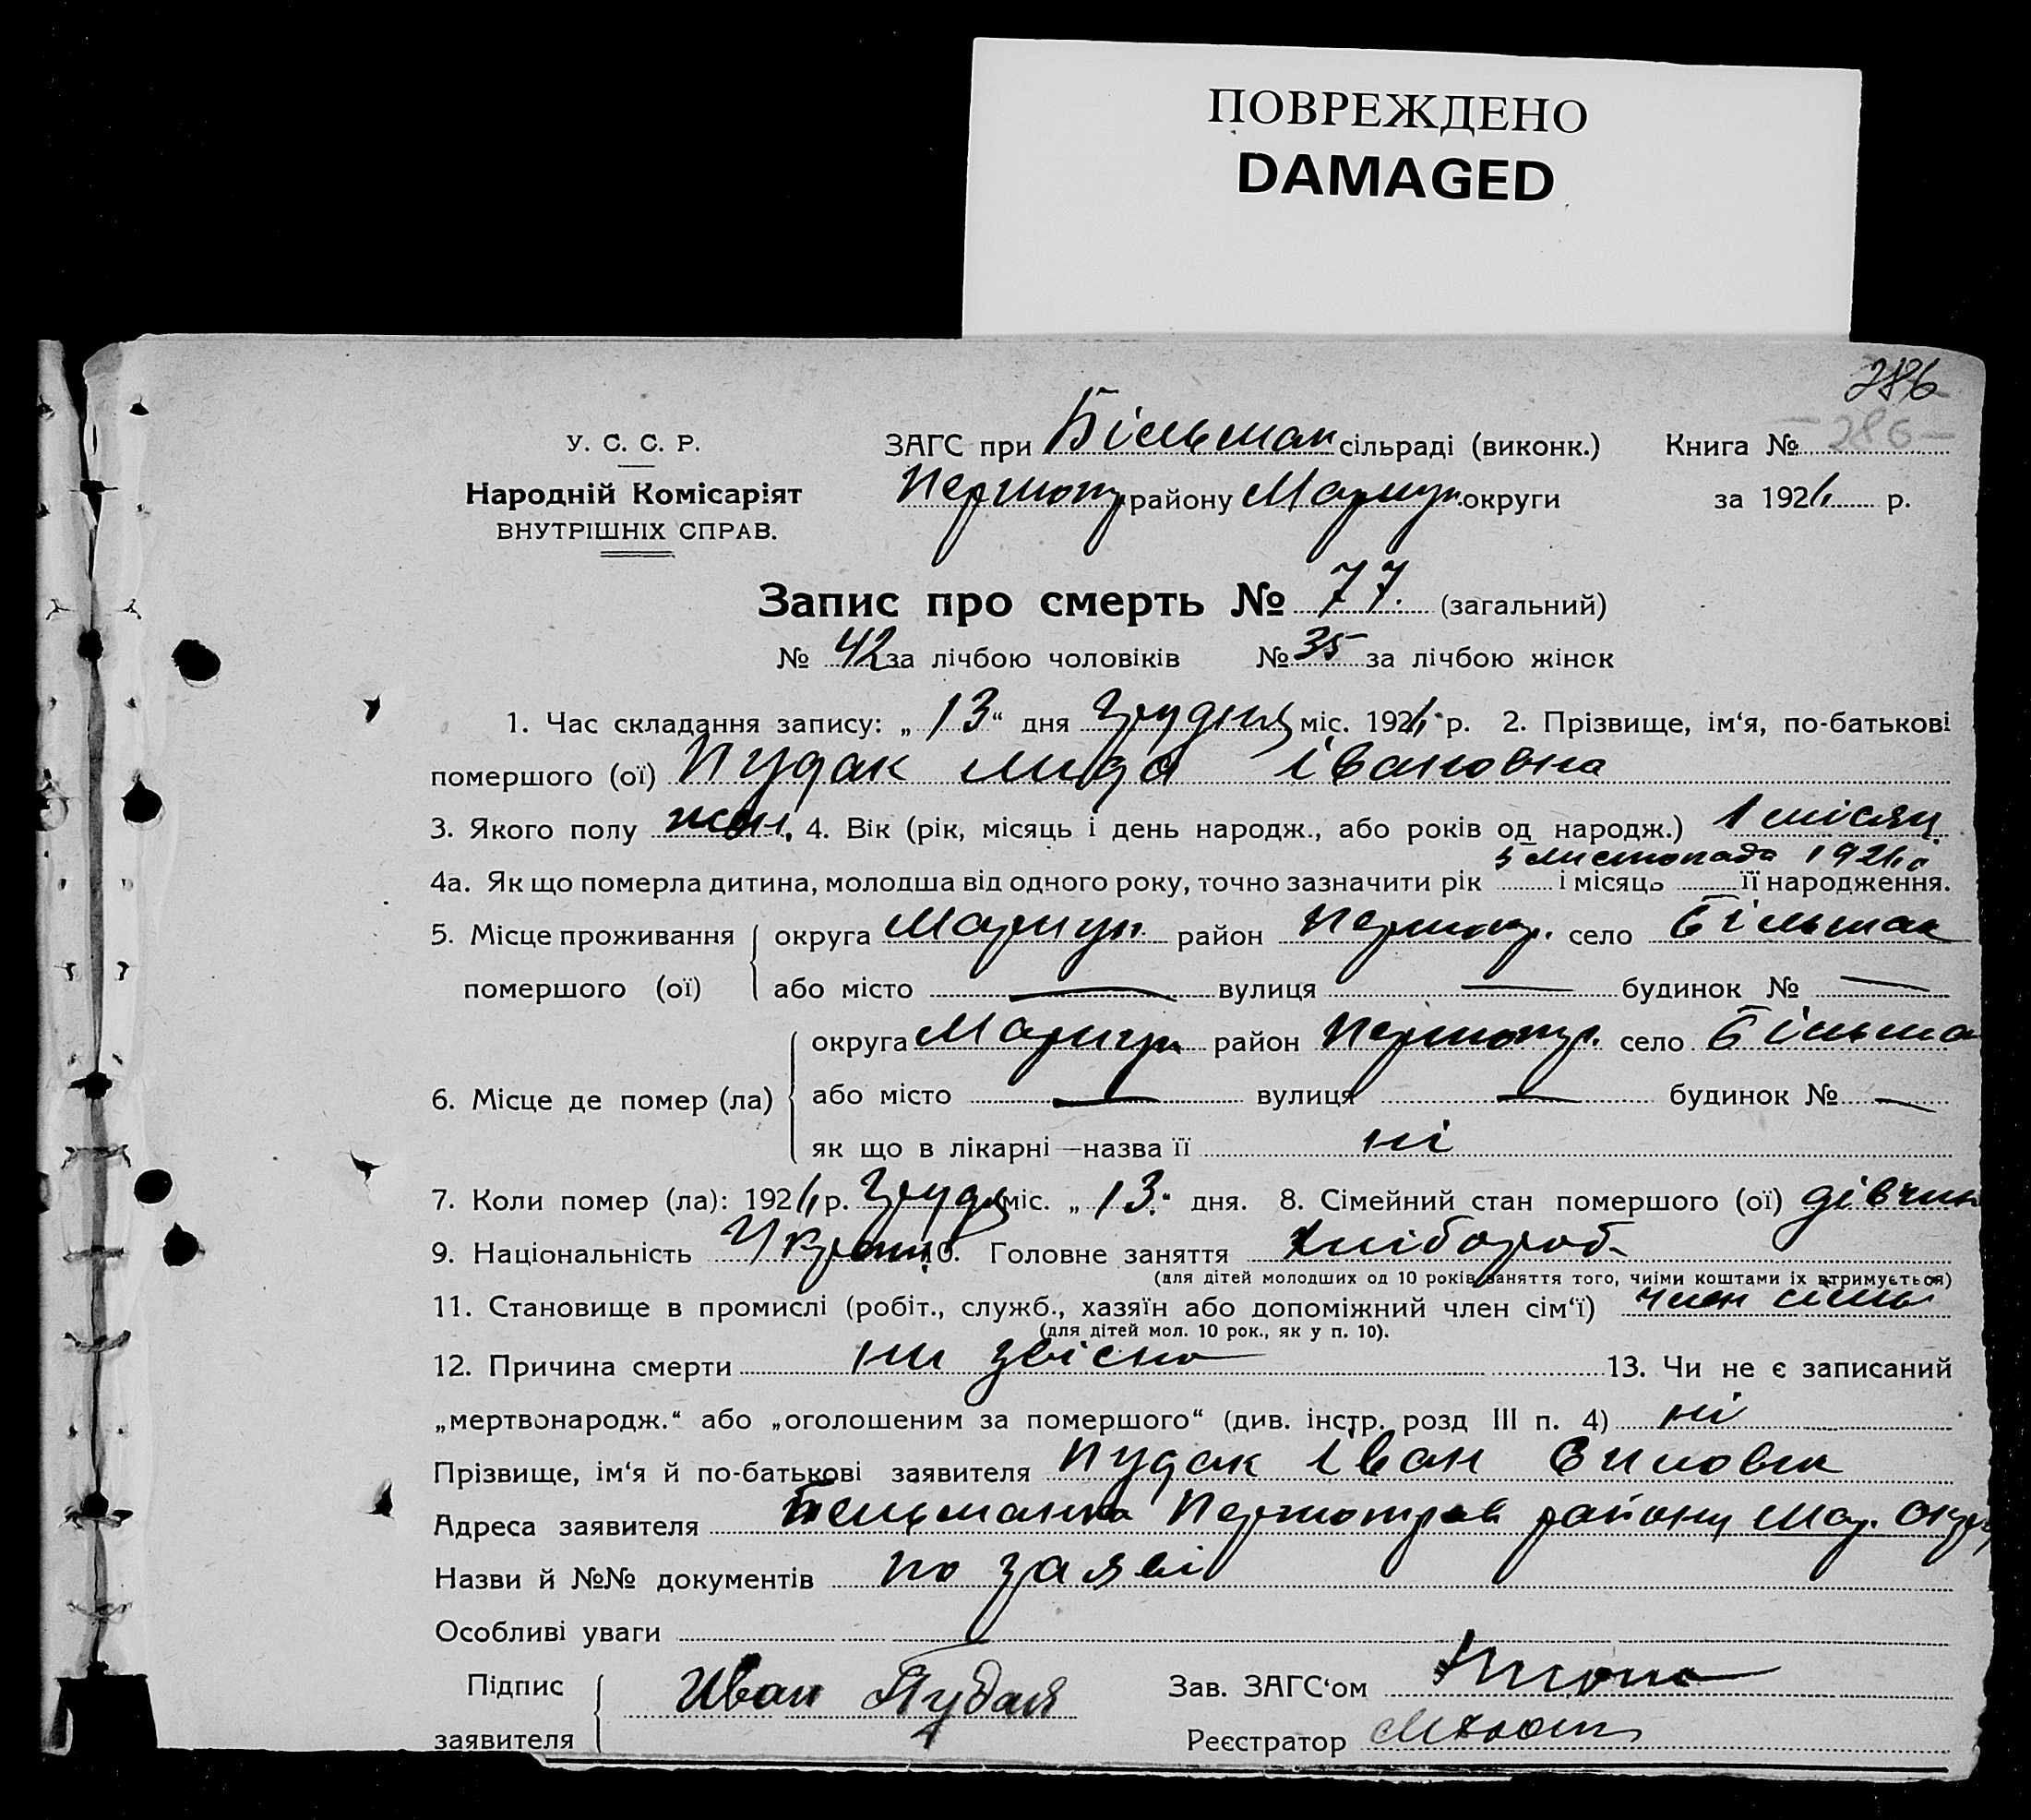 ПОВРЕЖДЕНО
DAMAGED
286
У. С. С. Р.
Народній Комісаріят
ВНУТРІШНІХ СПРАВ.
ЗАГС при Більмак сільраді (виконк.) Книга № 286
району Маріуп. округи за 192 р.
Запис про смерть № 77. (загальний)
№ 42 за лічбою чоловіків № 35 за лічбою жінок
1. Час складання запису: „ 13 “ дня Грудня міс. 192 р. 2. Прізвище, ім‘я, по-батькові
помершого (ої) Пудак Лида Івановна
3. Якого полу жін. 4. Вік (рік, місяць і день народж., або років од народж.) 1 місяц
5 листопада 192
4а. Як що померла дитина, молодша від одного року, точно зазначити рік і місяць її народження.
5. Місце проживання округа Маріуп. район село Більмак
помершого (ої) або місто — вулиця — будинок № —
округа Маріуп. район село Більма
6. Місце де помер (ла) або місто — вулиця — будинок № —
як що в лікарні — назва її ні
7. Коли помер (ла): 192 р. Груд міс. „ 13 “ дня. 8. Сімейний стан помершого (ої) дівчин
9. Національність Україн. 10. Головне заняття хлібороб.
(для дітей молодших од 10 років заняття того, чиїми коштами їх втримується)
11. Становище в промислі (робіт., служб., хазяїн або допоміжний член сім‘ї) член сімьї
(для дітей мол. 10 рок., як у п. 10).
12. Причина смерти ни звісна 13. Чи не є записаний
„мертвонародж.“ або „оголошеним за помершого“ (див. інстр. розд III п. 4) ні
Прізвище, ім‘я й по-батькові заявителя Пудак Іван
Адреса заявителя району Мар. окру
Назви й №№ документів по заяві
Особливі уваги
Підпис Иван Пудак Зав. ЗАГС‘ом
заявителя Реєстратор